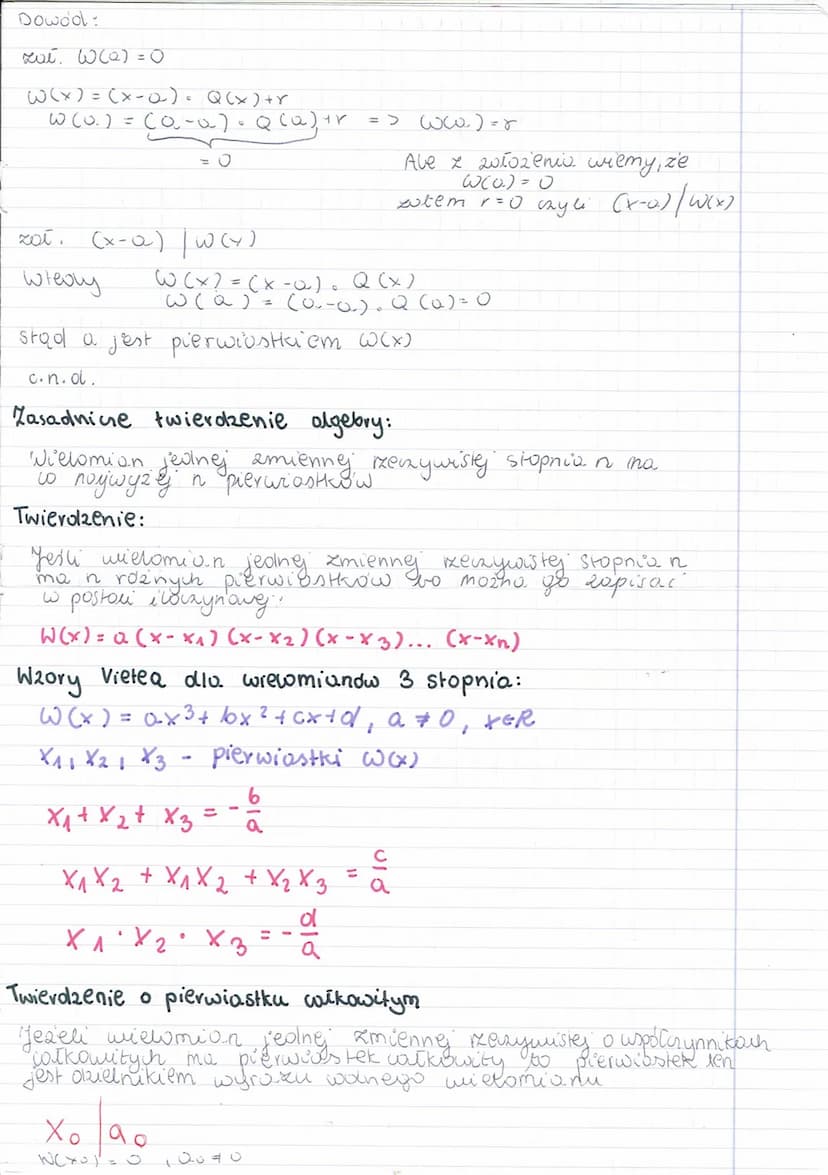 Dowód:
zał. W(a)=0
W(x)=(x-a)·Q(x)+r
W(a)=(a-a)·Q(a)+r => W(a)=r
=0
Ale z założenia wiemy, że
W(a)=0
zatem r=0 czyli (x-a)|W(x)
zał. (x-a)|W(x)
Wtedy W(x)=(x-a)·Q(x)
W(a)=(a-a)·Q(a)=0
stąd a jest pierwiastkiem W(x)
c.n.d.
Zasadnicze twierdzenie algebry:
Wielomian jednej zmiennej rzeczywistej stopnia n ma
co najwyżej n pierwiastków
Twierdzenie:
Jeśli wielomian jednej zmiennej rzeczywistej stopnia n
ma n różnych pierwiastków to można go zapisać
w postaci iloczynowej:
W(x)=a(x-x₁)(x-x₂)(x-x₃)...(x-xₙ)
Wzory Vietea dla wielomianów 3 stopnia:
W(x)=ax³+bx²+cx+d, a≠0, x∈R
x₁, x₂, x₃ - pierwiastki W(x)
x₁+x₂+x₃=-b/a
x₁x₂+x₁x₂+x₂x₃=c/a
x₁·x₂·x₃=-d/a
Twierdzenie o pierwiastku całkowitym
Jeżeli wielomian jednej zmiennej rzeczywistej o współczynnikach
całkowitych ma pierwiastek całkowity to pierwiastek ten
jest dzielnikiem wyrazu wolnego wielomianu
x₀|a₀
W(x₀)=0, a₀≠0